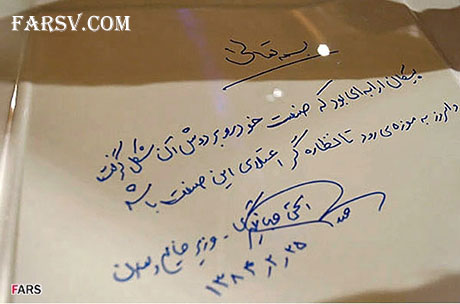 FARSV.COM
بسمه تعالی
پیکان ارابه‌ای بود که صنعت خودرو بر دوش آن شکل گرفت
و امروز به موزه می رود تا نظاره گر اعتلای این صنعت باشد
اسحق جهانگیری - وزیر صنایع و معادن
۱۳۸۴,۲,۲۵
FARS